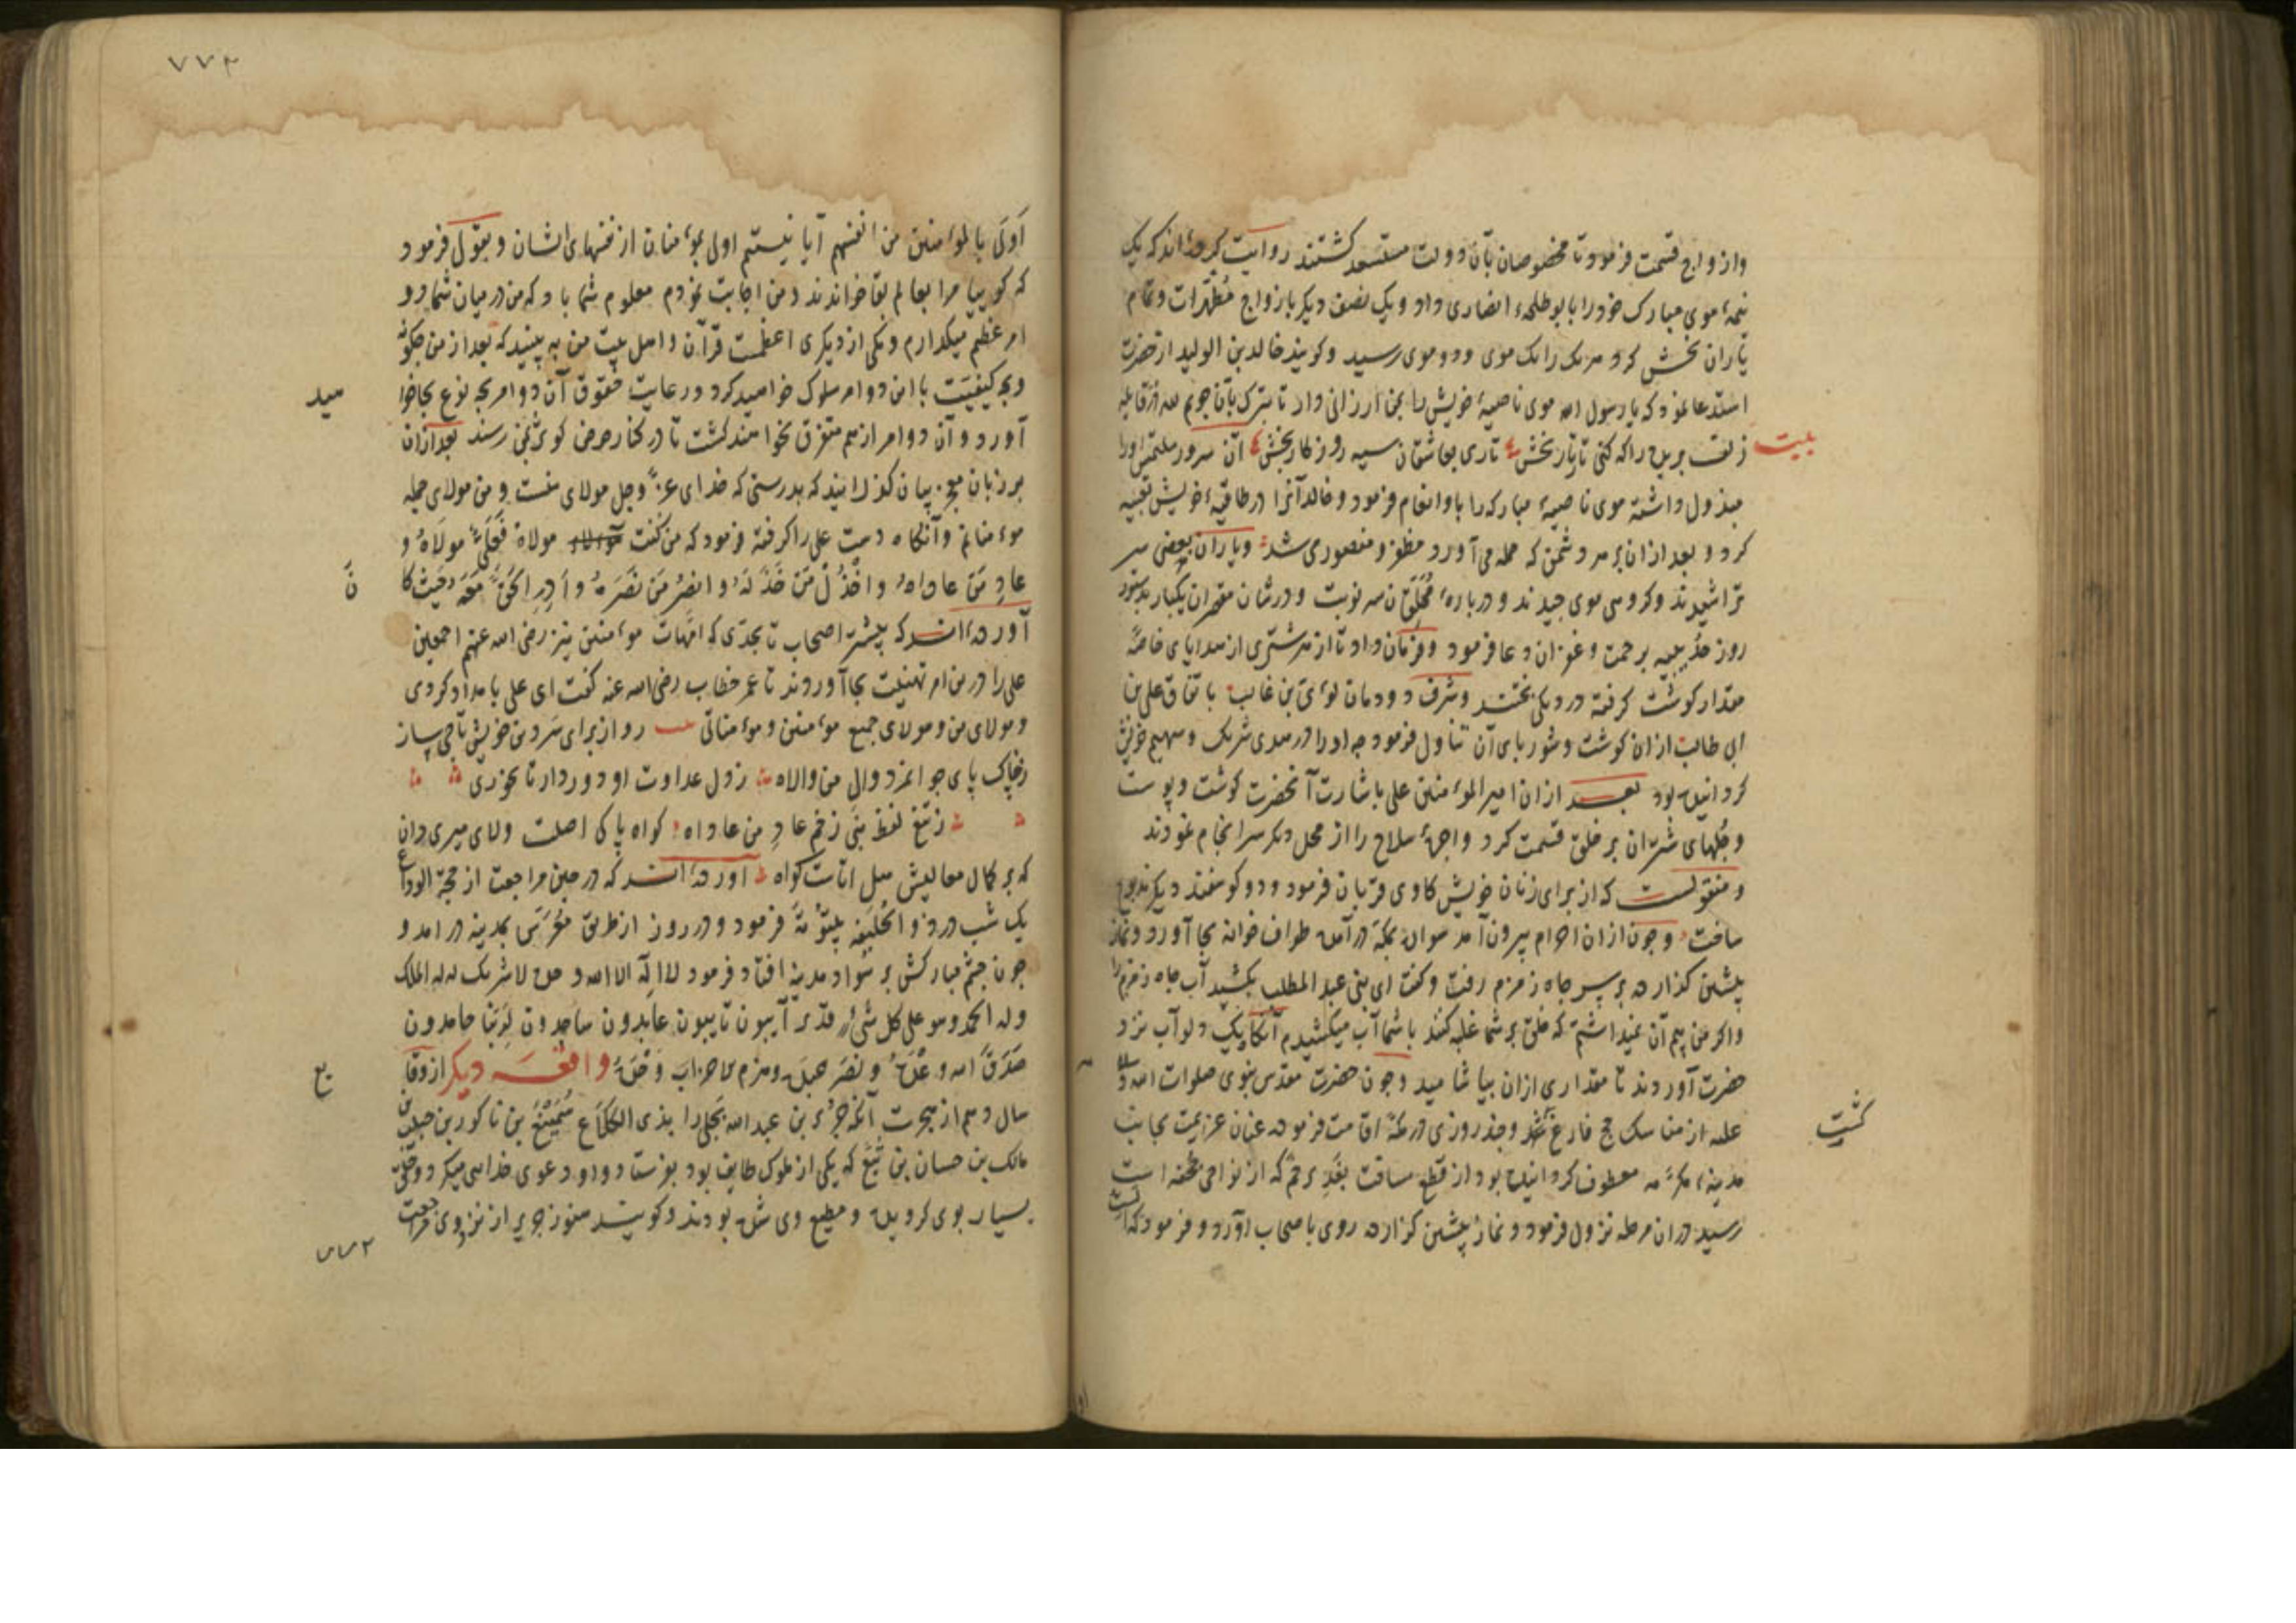 وازواج قسمت فرمود تا مخصوصان بآن دولت مستسعد کشتند روایت کرده‌اند که یک
نیمهٔ موی مبارک خود را بابو طلحهٔ انصاری داد و یک نصف دیکر بازواج مطهرات و تمام
یاران بخش کرد هر یک را یک موی و دو موی رسید و کویند خالد بن الولید از حضرت
استدعا نمود که یا رسول الله موی ناصیهٔ خویش را بمن ارزانی دار تا تبرک بآن جویم
بیت
زلف بریده را که کنی تار تار بخش تاری بعاشقان سیه روزکار بخش آن سرور ملتمس او را
مبذول داشته موی ناصیهٔ مبارکه را باو انعام فرمود و خالد آنرا در طاقیهٔ خویش تعبیه
کرد و بعد ازان بر هر دشمن که حمله می آورد مظفر و منصور می شد و یاران بعضی سر
تراشیدند و کروهی موی چیدند و دربارهٔ محلقان سه نوبت و در شان مقصران یکبار بدستور
روز حدیبیه برحمت و غفران دعا فرمود و فرمان داد تا از هر شتری از هدایای خاصه
مقدار کوشت کرفته در دیکی پختند و شرف دودمان لوی بن غالب باتفاق علی بن
ابی طالب ازان کوشت و شوربای آن تناول فرمود چه او را در هدی شریک و سهیم خویش
کردانیده بود بعد ازان امیر المؤمنین علی باشارت آنحضرت کوشت و پوست
و جلهای شتران بر خلق قسمت کرد و اجرهٔ سلاخ را از محل دیکر سرانجام نمودند
و منقولست که از برای زنان خویش کاوی قربان فرمود و دو کوسفند دیکر مذبوح
ساخت و چون ازان احرام بیرون آمد سواره بمکه درآمده طواف خانه بجا آورد و نماز
پیشین کذارده بر سر چاه زمزم رفت و کفت ای بنی عبد المطلب بکشید آب چاه زمزم را
و اکر من بیم آن نمیداشتم که خلق بر شما غلبه کنند با شما آب میکشیدم آنکاه یک دلو آب نزد
حضرت آوردند تا مقداری ازان بیاشامید و چون حضرت مقدس نبوی صلوات الله و سلامه
علیه از مناسک حج فارغ شد و چند روزی در مکه اقامت فرموده عنان عزیمت بجانب
کشت
مدینهٔ مکرمه معطوف کردانیده بود از قطع مسافت بغدیر خم که از نواحی جحفه است
رسیده دران مرحله نزول فرمود و نماز پیشین کزارده روی باصحاب آورد و فرمود که الست
۷۷۲
اولی بالمؤمنین من انفسهم آیا نیستم اولی بمؤمنان از نفسهای ایشان و بقول فرمود
که کوییا مرا بعالم بقا خواندند و من اجابت نمودم معلوم شما باد که من در میان شما دو
امر عظیم میکذارم و یکی از دیکری اعظمست قرآن و اهل بیت من به بینید که بعد از من چکونه
و بچه کیفیت با این دو امر سلوک خواهید کرد و رعایت حقوق آن دو امر بچه نوع بجا خوا
هید
آورد و آن دو امر از هم متفرق نخواهند کشت تا در کنار حوض کوثر بمن رسند بعد ازان
بر زبان معجز بیان کذرانید که بدرستی که خدای عز وجل مولای منست و من مولای جمله
مؤمنانم و آنکاه دست علی را کرفته فرمود که من کنت مولاه فعلی مولاه و
عاد من عاداه و اخذل من خذله و انصر من نصره و ادر الحق معه حیث کا
ن
آورده‌اند که بیشتر اصحاب تا بحدی که امهات مؤمنین نیز رضی الله عنهم اجمعین
علی را درین امر تهنیت بجا آوردند تا عمر خطاب رضی الله عنه کفت ای علی بامداد کردی
و مولای من و مولای جمیع مؤمنین و مؤمناتی رو از برای سر و تن خویش تاجی ساز
ز خاک پای جوانمرد وال من والاه ز دل عداوت او دور دار تا نخوری
ز تیغ لفظ نبی زخم عاد من عاداه کواه پاکی اصلت ولای میری دان
که بر کمال معالیش هل اتات کواه آورده‌اند که در حین مراجعت از حجة الوداع
یک شب در ذو الحلیفه بیتوته فرمود و در روز از طریق معرس بمدینه درآمد و
چون چشم مبارکش بر سواد مدینه افتاد فرمود لا اله الا الله وحده لا شریک له له الملک
وله الحمد وهو علی کل شیء قدیر آیبون تایبون عابدون ساجدون لربنا حامدون
صدق الله وعده و نصر عبده وهزم الاحزاب وحده واقعه دیکر از وقا
یع
سال دهم از هجرت آنکه جریر بن عبد الله بجلی را بذی الکلاع بن ناکور بن حبیب بن
مالک بن حسان بن تبع که یکی از ملوک طایف بود بفرستاد و او دعوی خدایی میکرد و خلق
بسیار بوی کرویده و مطیع وی شده بودند و کویند هنوز جریر از نزد وی مراجعت
۷۷۲